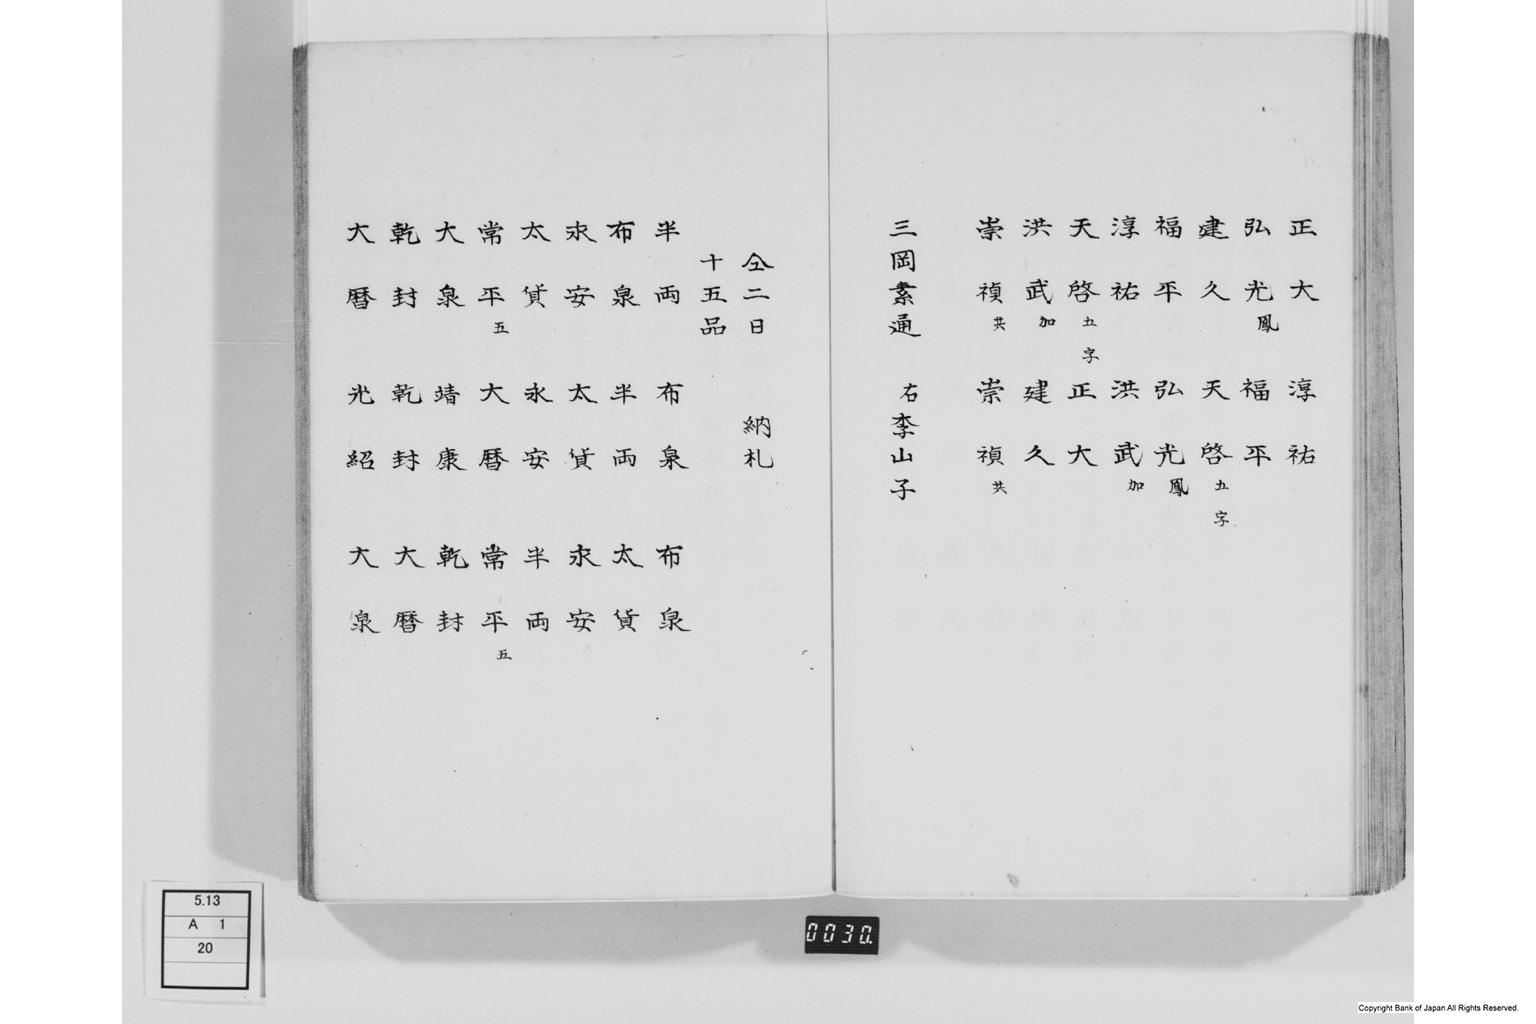 正大　淳祐
弘光鳳　福平
建久　天啓五字
福平　弘光鳳
淳祐　洪武加
天啓五字　正大
洪武加　建久
崇禎共　崇禎共
三岡素通　右李山子
仝二日　納札
十五品
半両　布泉　布泉
布泉　半両　太貨
永安　太貨　永安
太貨　永安　半両
常平五　大暦　常平五
大泉　靖康　乾封
乾封　乾封　大暦
大暦　光紹　大泉
5.13
A 1
20
0030.
Copyright Bank of Japan All Rights Reserved.